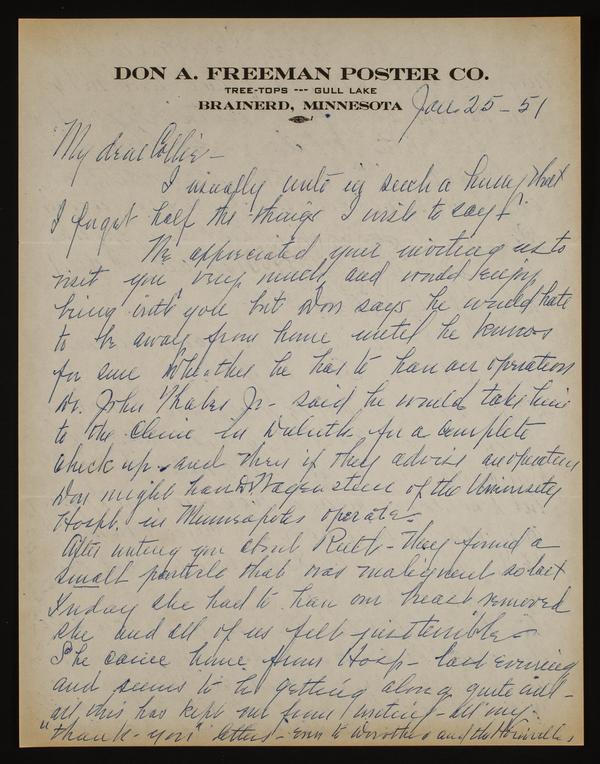 DON A. FREEMAN POSTER CO.
TREE-TOPS --- GULL LAKE
BRAINERD, MINNESOTA
Jan. 25 - 51
My dear Collie -
I usually write in such a hurry that
I forget half the things I wish to say.
We appreciated your inviting us to
visit you very much and would enjoy
being with you but Don says he would hate
to be away from home until he knows
for sure whether he has to have an operation
Dr. John Thabes Jr - said he would take him
to the Clinic in Duluth for a complete
check up and then if they advise an operation
Don might have Dr Wagensteen of the University
Hospt. in Minneapolis operate -
After writing you about Ruth - they found a
small particle that was malignant so last
Friday she had to have one breast removed
she and all of us felt just terrible -
She came home from Hosp - last evening
and seems to be getting along quite well -
all this has kept me from writing - all my
"thank-you" letters - even to Dorothea and the